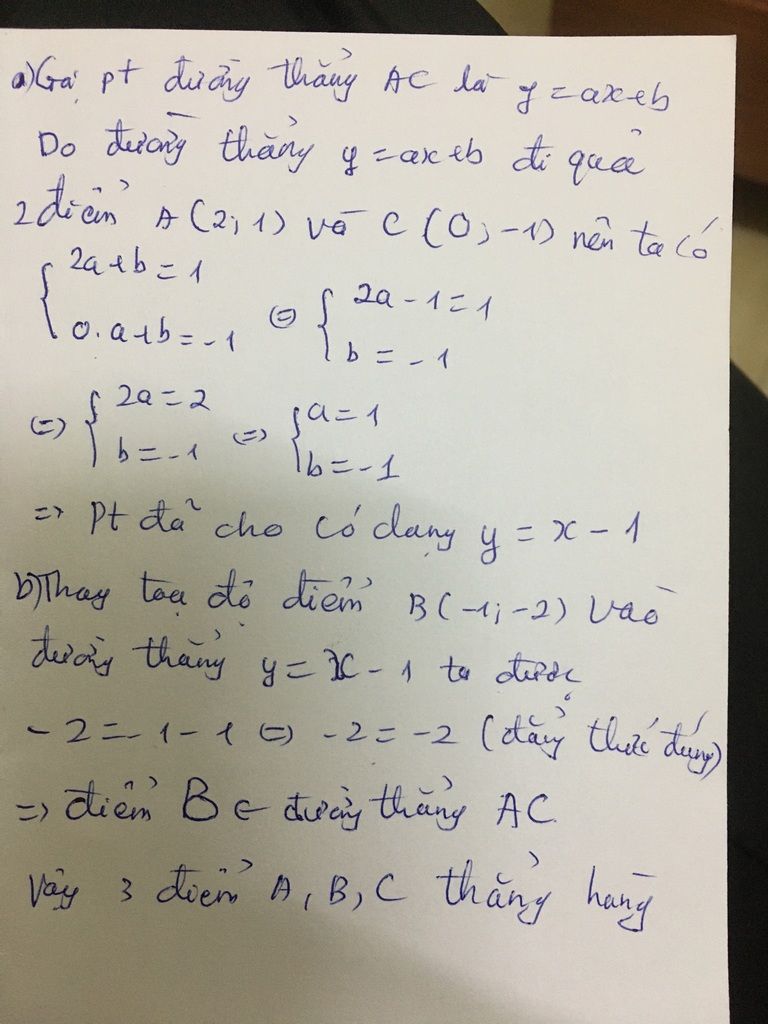 a) Gọi pt đường thẳng AC là y = ax+b
Do đường thẳng y = ax+b đi qua
2 điểm A (2; 1) và C (0; -1) nên ta có
{ 2a+b = 1 ; 0.a+b = -1 ⇔ { 2a - 1 = 1 ; b = -1
⇔ { 2a = 2 ; b = -1 ⇔ { a = 1 ; b = -1
=> Pt đã cho có dạng y = x - 1
b) Thay toạ độ điểm B(-1; -2) vào
đường thẳng y = x - 1 ta được
- 2 = - 1 - 1 ⇔ -2 = -2 (đẳng thức đúng)
=> điểm B ∈ đường thẳng AC
Vậy 3 điểm A, B, C thẳng hàng